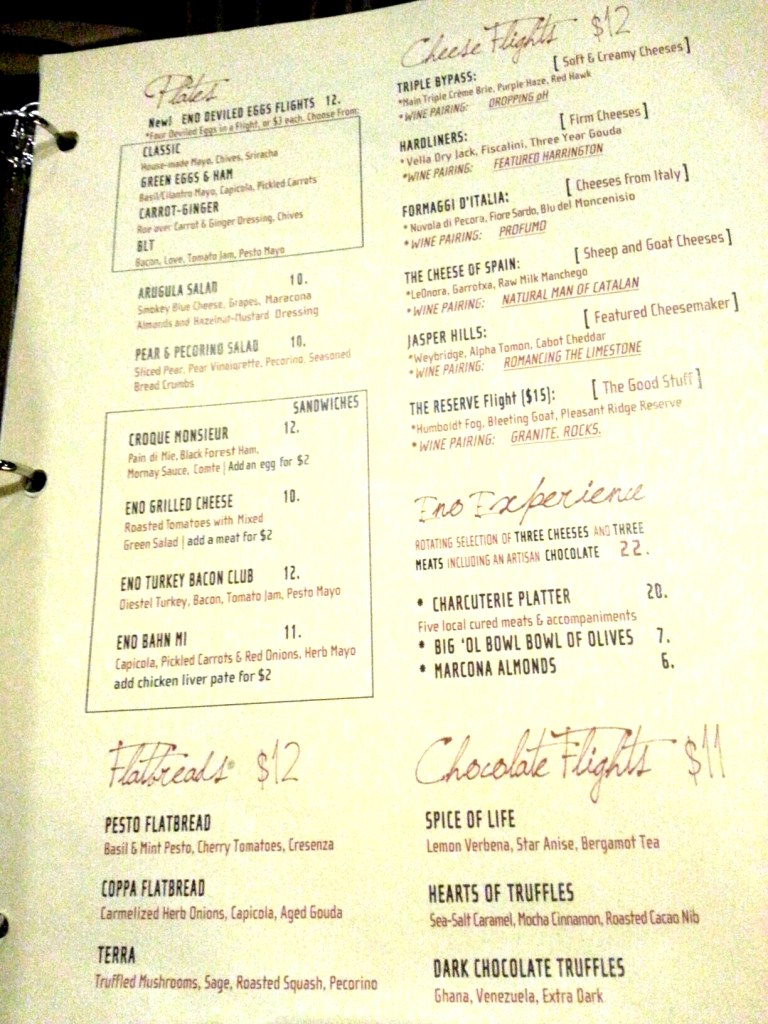 Plates
New! ENO DEVILED EGGS FLIGHTS 12.
*Four Deviled Eggs in a Flight, or $3 each. Choose From:
CLASSIC
House-made Mayo, Chives, Sriracha
GREEN EGGS & HAM
Basil/Cilantro Mayo, Capicola, Pickled Carrots
CARROT-GINGER
Roe over Carrot & Ginger Dressing, Chives
BLT
Bacon, Love, Tomato Jam, Pesto Mayo
ARUGULA SALAD 10.
Smokey Blue Cheese, Grapes, Maracona
Almonds and Hazelnut-Mustard Dressing
PEAR & PECORINO SALAD 10.
Sliced Pear, Pear Vinaigrette, Pecorino, Seasoned
Bread Crumbs
SANDWICHES
CROQUE MONSIEUR 12.
Pain di Mie, Black Forest Ham,
Mornay Sauce, Comte | Add an egg for $2
ENO GRILLED CHEESE 10.
Roasted Tomatoes with Mixed
Green Salad | add a meat for $2
ENO TURKEY BACON CLUB 12.
Diestel Turkey, Bacon, Tomato Jam, Pesto Mayo
ENO BAHN MI 11.
Capicola, Pickled Carrots & Red Onions, Herb Mayo
add chicken liver pate for $2
Flatbreads $12
PESTO FLATBREAD
Basil & Mint Pesto, Cherry Tomatoes, Cresenza
COPPA FLATBREAD
Carmelized Herb Onions, Capicola, Aged Gouda
TERRA
Truffled Mushrooms, Sage, Roasted Squash, Pecorino
Cheese Flights $12
TRIPLE BYPASS: [ Soft & Creamy Cheeses ]
*Main Triple Crème Brie, Purple Haze, Red Hawk
*WINE PAIRING: DROPPING pH
HARDLINERS: [ Firm Cheeses ]
* Vella Dry Jack, Fiscalini, Three Year Gouda
*WINE PAIRING: FEATURED HARRINGTON
FORMAGGI D'ITALIA: [ Cheeses from Italy ]
* Nuvola di Pecora, Fiore Sardo, Blu del Moncenisio
* WINE PAIRING: PROFUMO
THE CHEESE OF SPAIN: [ Sheep and Goat Cheeses ]
*LeOnora, Garrotxa, Raw Milk Manchego
* WINE PAIRING: NATURAL MAN OF CATALAN
JASPER HILLS: [ Featured Cheesemaker ]
*Weybridge, Alpha Tomon, Cabot Cheddar
* WINE PAIRING: ROMANCING THE LIMESTONE
THE RESERVE Flight ($15): [ The Good Stuff ]
*Humboldt Fog, Bleeting Goat, Pleasant Ridge Reserve
*WINE PAIRING: GRANITE. ROCKS.
Eno Experience
ROTATING SELECTION OF THREE CHEESES AND THREE
MEATS INCLUDING AN ARTISAN CHOCOLATE 22.
• CHARCUTERIE PLATTER 20.
Five local cured meats & accompaniments
• BIG 'OL BOWL BOWL OF OLIVES 7.
• MARCONA ALMONDS 6.
Chocolate Flights $11
SPICE OF LIFE
Lemon Verbena, Star Anise, Bergamot Tea
HEARTS OF TRUFFLES
Sea-Salt Caramel, Mocha Cinnamon, Roasted Cacao Nib
DARK CHOCOLATE TRUFFLES
Ghana, Venezuela, Extra Dark